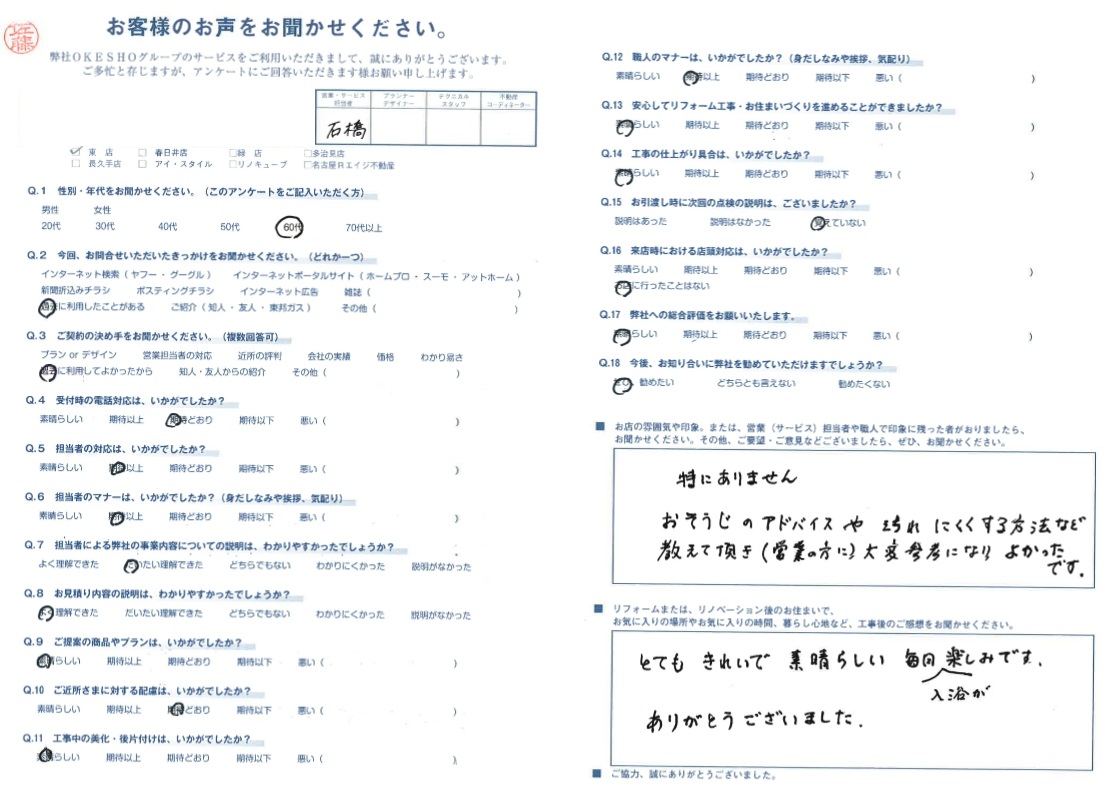 佐藤
お客様のお声をお聞かせください。
弊社OKESHOグループのサービスをご利用いただきまして、誠にありがとうございます。
ご多忙と存じますが、アンケートにご回答いただきます様お願い申し上げます。
営業・サービス担当者 プランナーデザイナー テクニカルスタッフ 不動産コーディネーター
石橋
☑ 東 店 □ 春日井店 □緑 店 □多治見店
□ 長久手店 □ アイ・スタイル □リノキューブ □名古屋Rエイジ不動産
Q.1 性別・年代をお聞かせください。（このアンケートをご記入いただく方）
男性 女性
20代 30代 40代 50代 60代 70代以上
Q.2 今回、お問合せいただいたきっかけをお聞かせください。（どれか一つ）
インターネット検索（ ヤフー ・ グーグル ） インターネットポータルサイト（ ホームプロ ・ スーモ ・ アットホーム ）
新聞折込みチラシ ポスティングチラシ インターネット広告 雑誌（ ）
過去に利用したことがある ご紹介（ 知人 ・ 友人 ・ 東邦ガス ） その他（ ）
Q.3 ご契約の決め手をお聞かせください。（複数回答可）
プラン or デザイン 営業担当者の対応 近所の評判 会社の実績 価格 わかり易さ
過去に利用してよかったから 知人・友人からの紹介 その他（ ）
Q.4 受付時の電話対応は、いかがでしたか？
素晴らしい 期待以上 期待どおり 期待以下 悪い（ ）
Q.5 担当者の対応は、いかがでしたか？
素晴らしい 期待以上 期待どおり 期待以下 悪い（ ）
Q.6 担当者のマナーは、いかがでしたか？（身だしなみや挨拶、気配り）
素晴らしい 期待以上 期待どおり 期待以下 悪い（ ）
Q.7 担当者による弊社の事業内容についての説明は、わかりやすかったでしょうか？
よく理解できた だいたい理解できた どちらでもない わかりにくかった 説明がなかった
Q.8 お見積り内容の説明は、わかりやすかったでしょうか？
よく理解できた だいたい理解できた どちらでもない わかりにくかった 説明がなかった
Q.9 ご提案の商品やプランは、いかがでしたか？
素晴らしい 期待以上 期待どおり 期待以下 悪い（ ）
Q.10 ご近所さまに対する配慮は、いかがでしたか？
素晴らしい 期待以上 期待どおり 期待以下 悪い（ ）
Q.11 工事中の美化・後片付けは、いかがでしたか？
素晴らしい 期待以上 期待どおり 期待以下 悪い（ ）
Q.12 職人のマナーは、いかがでしたか？（身だしなみや挨拶、気配り）
素晴らしい 期待以上 期待どおり 期待以下 悪い（ ）
Q.13 安心してリフォーム工事・お住まいづくりを進めることができましたか？
素晴らしい 期待以上 期待どおり 期待以下 悪い（ ）
Q.14 工事の仕上がり具合は、いかがでしたか？
素晴らしい 期待以上 期待どおり 期待以下 悪い（ ）
Q.15 お引渡し時に次回の点検の説明は、ございましたか？
説明はあった 説明はなかった 覚えていない
Q.16 来店時における店頭対応は、いかがでしたか？
素晴らしい 期待以上 期待どおり 期待以下 悪い（ ）
お店に行ったことはない
Q.17 弊社への総合評価をお願いいたします。
素晴らしい 期待以上 期待どおり 期待以下 悪い（ ）
Q.18 今後、お知り合いに弊社を勧めていただけますでしょうか？
ぜひ、勧めたい どちらとも言えない 勧めたくない
■ お店の雰囲気や印象。または、営業（サービス）担当者や職人で印象に残った者がおりましたら、
お聞かせください。その他、ご要望・ご意見などございましたら、ぜひ、お聞かせください。
特にありません
おそうじのアドバイスや 汚れにくくする方法など
教えて頂き(営業の方に)大変参考になり よかった
です。
■ リフォームまたは、リノベーション後のお住まいで、
お気に入りの場所やお気に入りの時間、暮らし心地など、工事後のご感想をお聞かせください。
とても きれいで 素晴らしい 毎日 楽しみです。
入浴が
ありがとうございました。
■ ご協力、誠にありがとうございました。